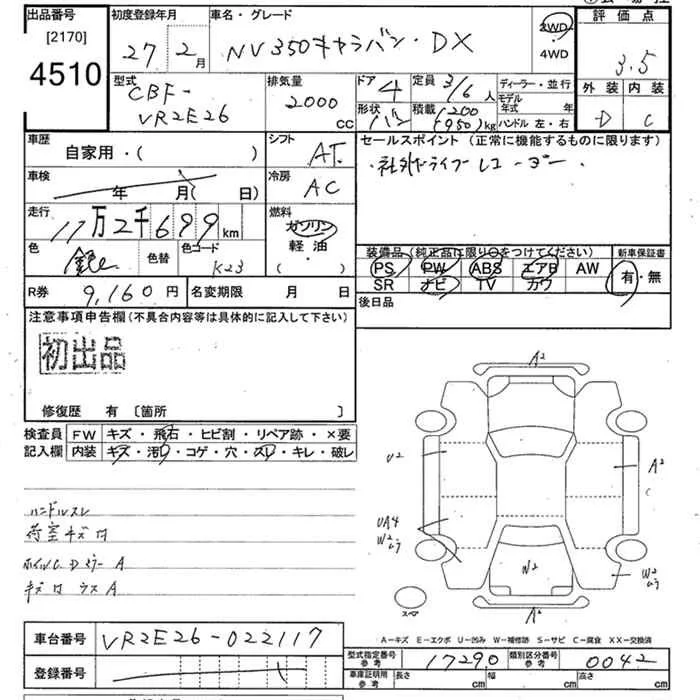 出品番号
[2170]
4510
初度登録年月
27年 2月
車名・グレード
NV350キャラバン・DX
2WD・4WD
評価点
3.5
外装 内装
D C
型式
CBF-
VR2E26
排気量
2000
CC
ドア 4
形状 バン
定員 3/6 人
積載 1200 (950) kg
ディーラー・並行
モデル年式 年
ハンドル 左・右
車歴
自家用・( )
シフト AT
セールスポイント(正常に機能するものに限ります)
・社外ドライブレコーダー・
車検
年 月( 日)
冷房 AC
走行
11万2千699km
燃料
ガソリン
軽油
( ・ )
色 銀
色替
色コード K23
装備品(純正品に限り○をつけてください)
新車保証書
PS PW ABS エアB AW
SR ナビ TV カワ
有・無
R券 9,160円
名変期限 月 日
後日品
注意事項申告欄(不具合内容等は具体的に記入して下さい)
初出品
修復歴 有 〔箇所 〕
検査員記入欄
FW キズ・飛石・ヒビ割・リペア跡・×要
内装 キズ・汚レ・コゲ・穴・スレ・キレ・破レ
ハンドルスレ
荷室キズ凹
ホイルC Dミラー A
キズ凹 ウスA
A2
U2
A2
UA4
W2
ムラ
W2
ムラ
N2
スペア
A2
A-キズ E-エクボ U-凹み W-補修跡 S-サビ C-腐食 XX-交換済
車台番号 VR2E26-022117
登録番号
型式指定番号 参考 17290
類別区分番号 参考 0042
車庫証明用 参考 長さ cm 幅 cm 高さ cm